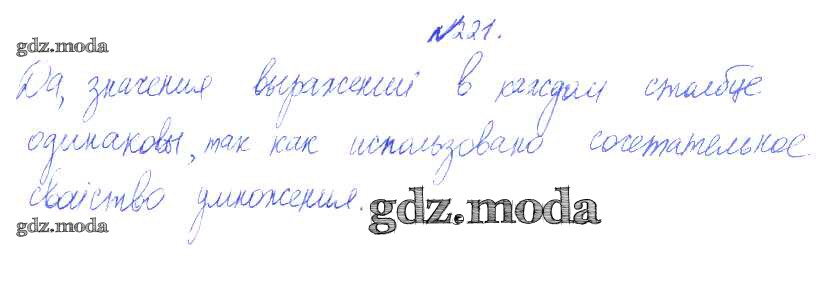 №221.
gdz.moda
Да, значения выражений в каждом столбце
одинаковы, так как использовано сочетательное
свойство умножения.
gdz.moda
gdz.moda